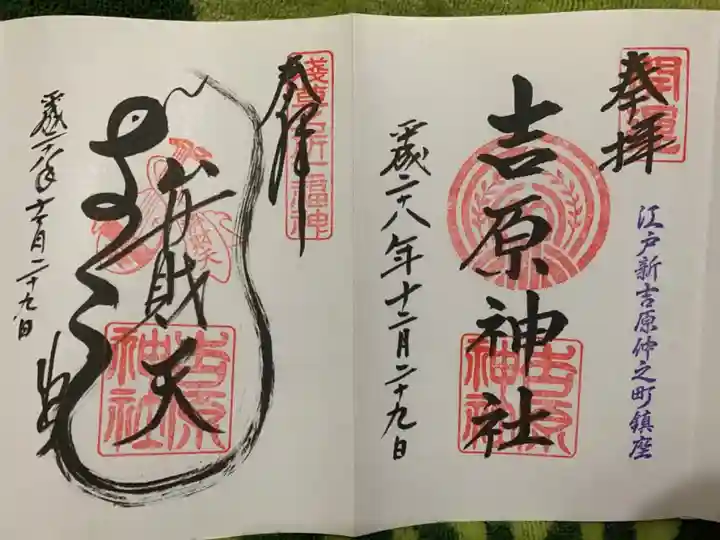 奉拝
開運
江戸新吉原仲之町鎮座
吉原神社
吉原神社
平成二十八年十二月二十九日
奉拝
淺草名所七福神
弁財天
吉原神社
平成二十八年十二月二十九日